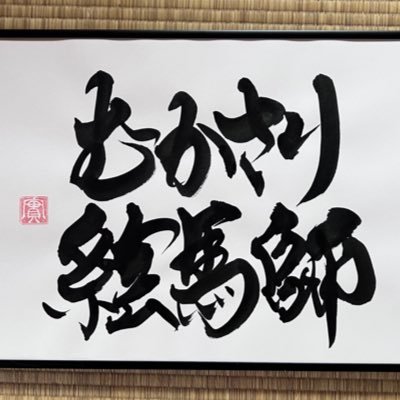 むかさり
絵馬師